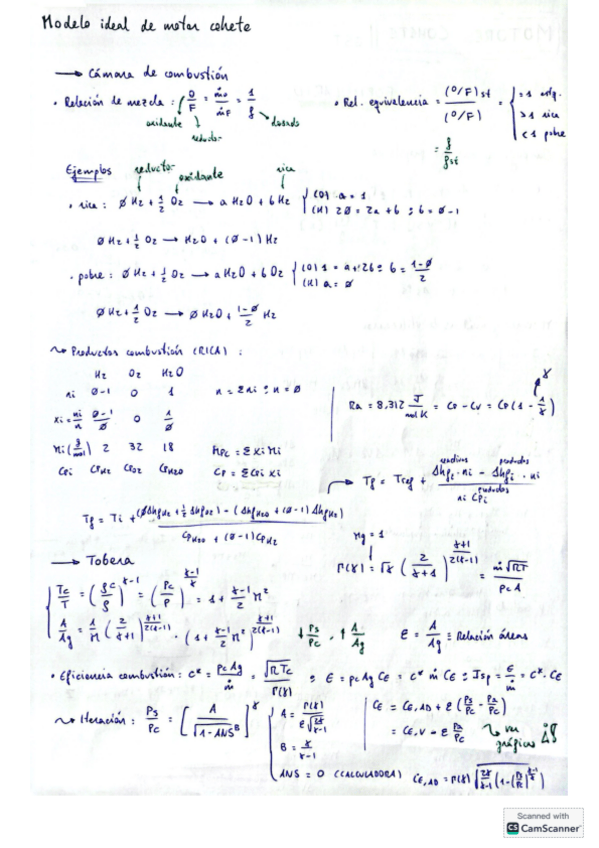 Modelo ideal de motor cohete
→ Cámara de combustión
• Relación de mezcla : (O/F = ṁo/ṁF = 1/f
oxidante reductor dosado
• Rel. equivalencia = (O/F)st / (O/F) = { = 1 estq. > 1 rica < 1 pobre
= f/fst
Ejemplos reductor oxidante rica
• rica : ØH2 + 1/2 O2 → aH2O + bH2 { (O) a = 1 (H) 2Ø = 2a + b ; b = Ø-1
ØH2 + 1/2 O2 → H2O + (Ø-1) H2
• pobre : ØH2 + 1/2 O2 → aH2O + bO2 { (O) 1 = a + 2b ; b = (1-Ø)/2 (H) a = Ø
ØH2 + 1/2 O2 → ØH2O + (1-Ø)/2 H2
~> Productos combustión (RICA) :
H2 O2 H2O
ni Ø-1 0 1 n = Σni ; n = Ø
xi = ni/n (Ø-1)/Ø 0 1/Ø
Mi (g/mol) 2 32 18 MPC = Σ xi Mi
CPi CPH2 CPO2 CPH2O CP = Σ CPi xi
Ra = 8,312 J/mol K = CP - CV = CP (1 - 1/γ) γ
→ Tf = Tref + (Δhfi · ni - Δhfi · ni) / (ni CPi)
reactivos productos
productos
Tf = Ti + ((ØΔhfH2 + 1/2 ΔhfO2) - (ΔhfH2O + (Ø-1) ΔhfH2)) / (CPH2O + (Ø-1) CPH2)
→ Tobera
Mg = 1
Γ(γ) = √γ (2/(γ+1))^((γ+1)/(2(γ-1))) = ṁ√(RT) / (Pc A)
{ Tc/T = (ρc/ρ)^(γ-1) = (Pc/P)^((γ-1)/γ) = 1 + (γ-1)/2 M²
A/Ag = 1/M (2/(γ+1))^((γ+1)/(2(γ-1))) · (1 + (γ-1)/2 M²)^((γ+1)/(2(γ-1)))
↓ Ps/Pc , ↑ A/Ag ε = A/Ag = Relación áreas
• Eficiencia combustión : C* = Pc Ag/ṁ = √(R Tc)/Γ(γ) ; E = Pc Ag CE = C* ṁ CE ; Isp = E/ṁ = C* · CE
~> Iteración : Ps/Pc = [A/√(1-ANS^B)]^γ
{ A = Γ(γ) / (ε√(2γ/(γ-1)))
B = γ/(γ-1)
ANS = 0 (CALCULADORA)
CE = CE,AD + ε (Ps/Pc - Pa/Pc)
= CE,V - ε Pa/Pc
~> ver gráficos
CE,AD = Γ(γ) √(2γ/(γ-1) (1-(Ps/Pc)^((γ-1)/γ)))
Scanned with
CS CamScanner